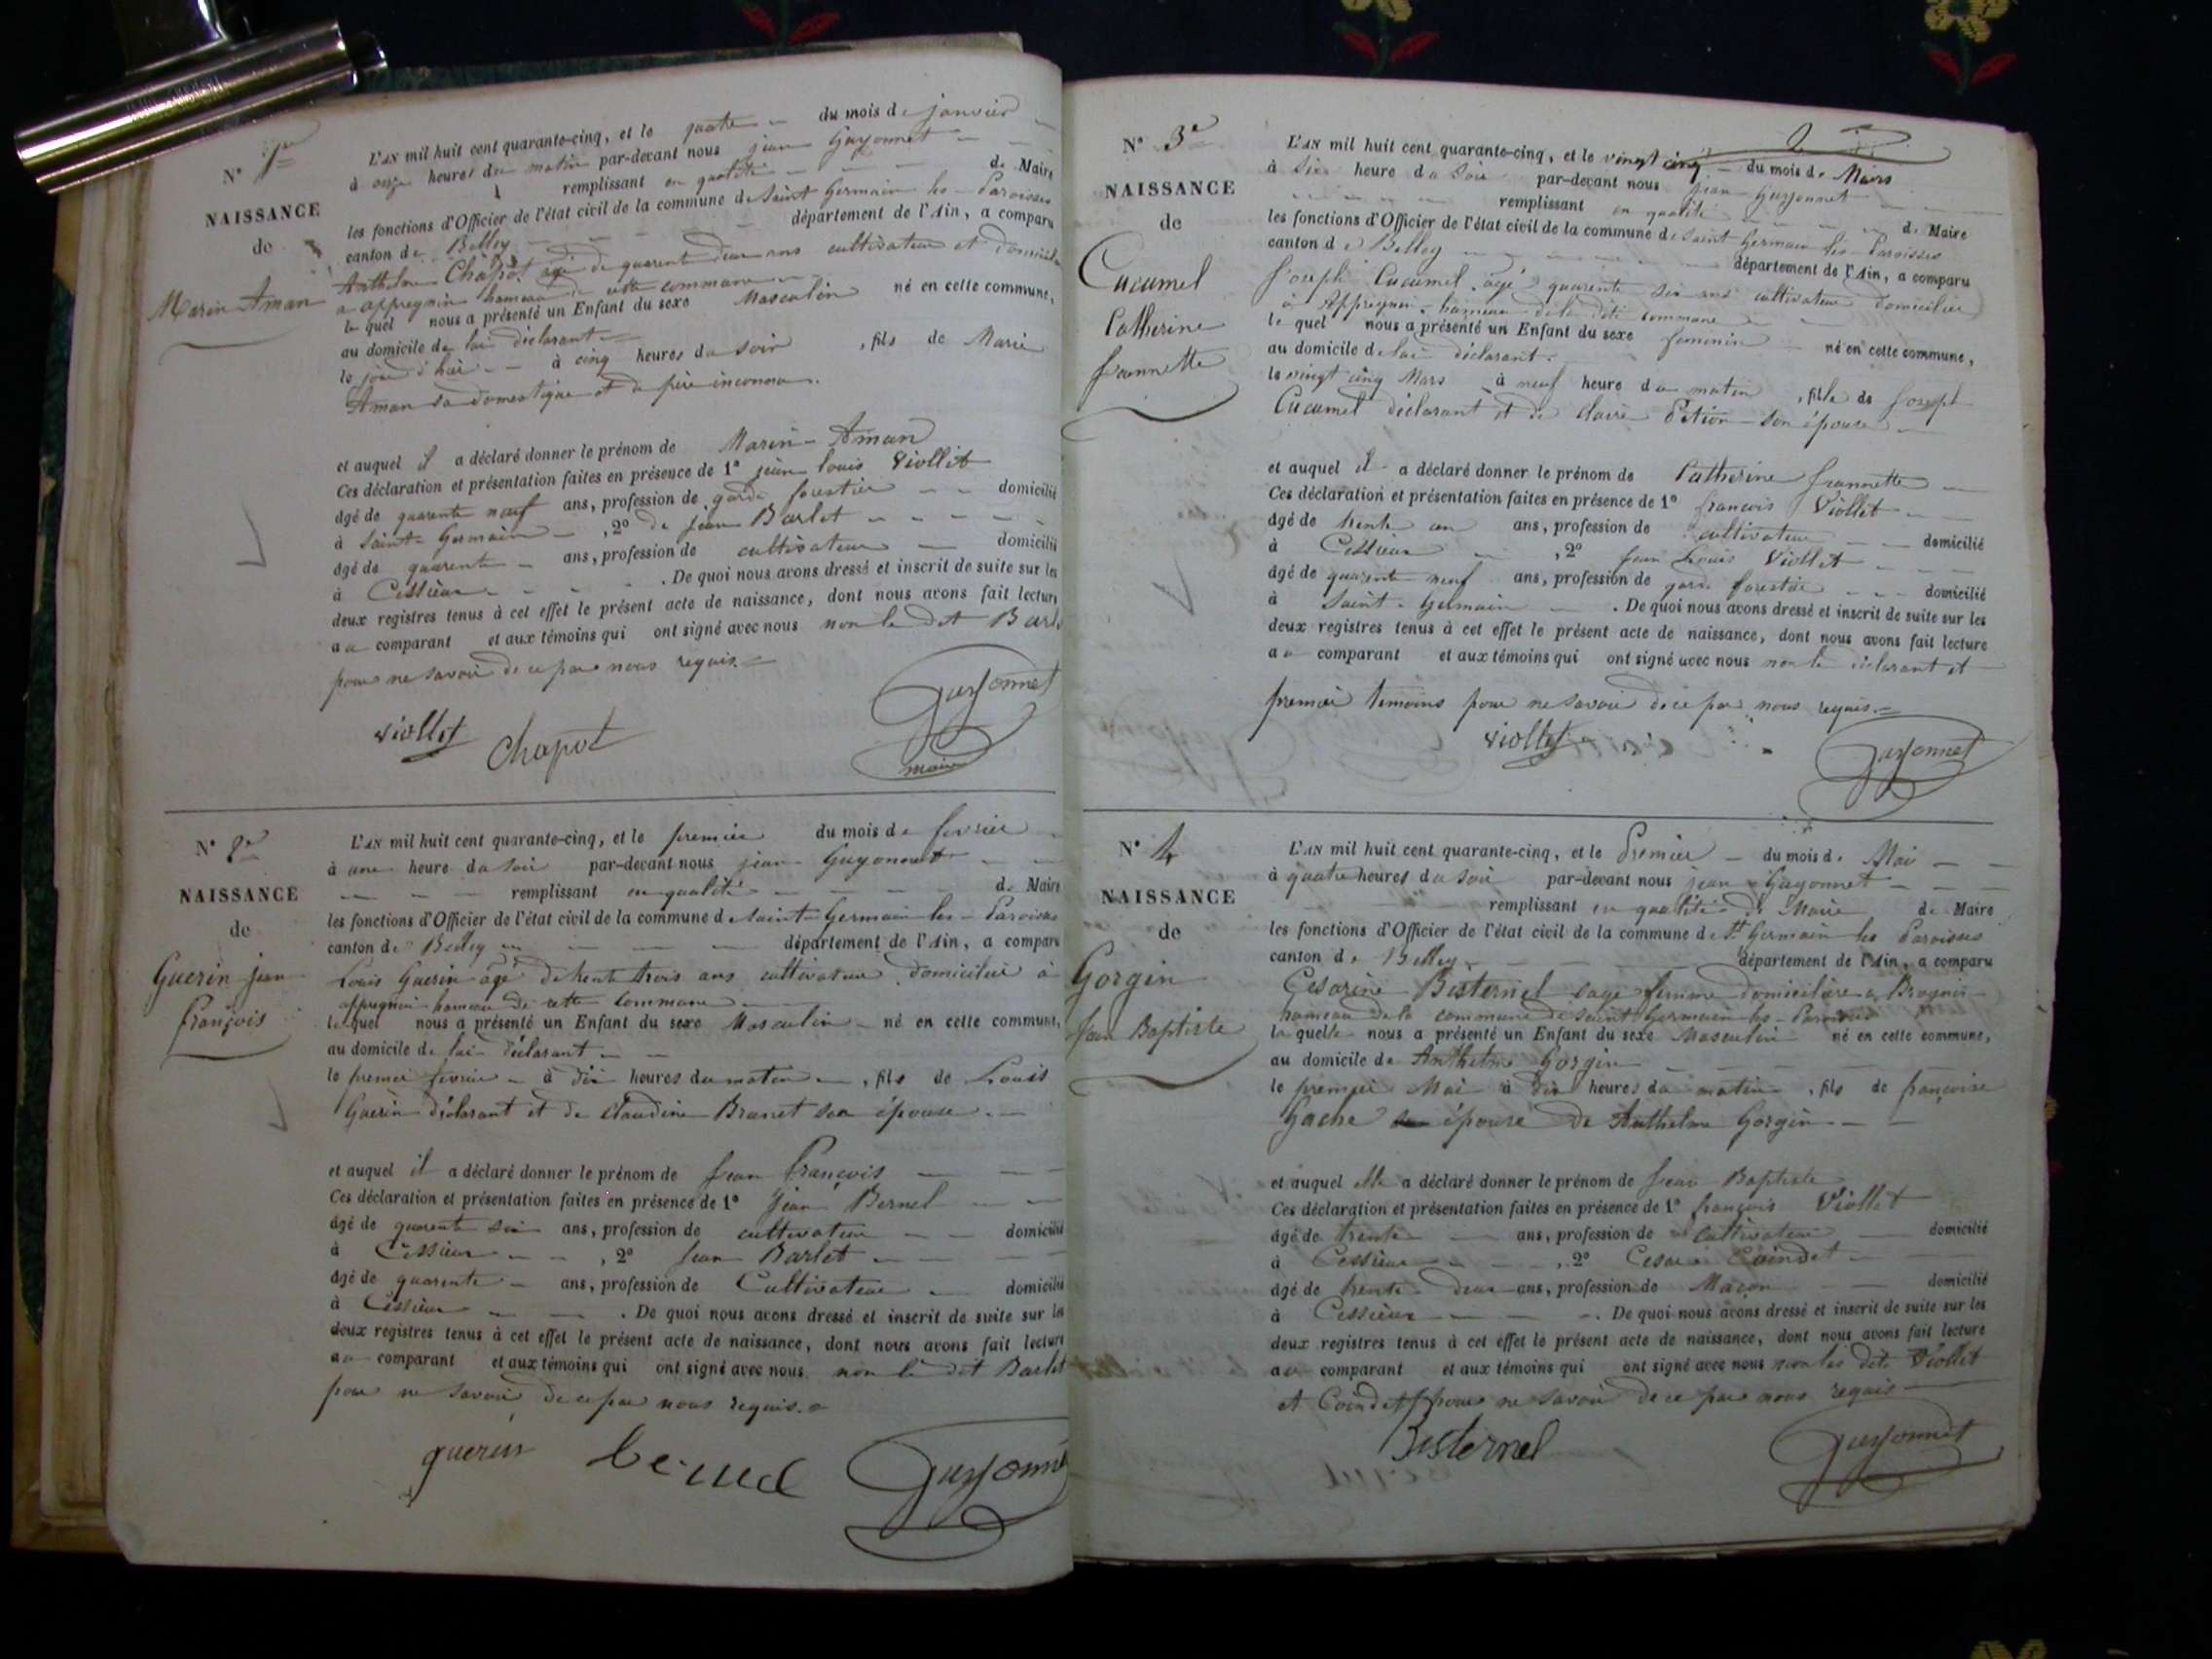 N° 1er
NAISSANCE
de
Marin Aman
L'AN mil huit cent quarante-cinq, et le quatre du mois de janvier
à onze heures du matin par-devant nous jean Guyonnet
remplissant en qualité de Maire
les fonctions d'Officier de l'état civil de la commune de Saint Germain les Paroisses
canton de Belley département de l'Ain, a comparu
Anthelme Chapot agé de quarente deux ans cultivateur et domicilié
a appregnin hameau de cette commune
le quel nous a présenté un Enfant du sexe Masculin né en cette commune,
au domicile de lui déclarant
le jour d'hier à cinq heures du soir, fils de Marie
Aman sa domestique et de père inconnu.
et auquel il a déclaré donner le prénom de Marin Aman
Ces déclaration et présentation faites en présence de 1° jean louis Viollet
âgé de quarente neuf ans, profession de garde forestier domicilié
à Saint-Germain, 2° de jean Barlet
âgé de quarente ans, profession de cultivateur domicilié
à Cessieux. De quoi nous avons dressé et inscrit de suite sur les
deux registres tenus à cet effet le présent acte de naissance, dont nous avons fait lecture
au comparant et aux témoins qui ont signé avec nous non le dit Barlet
pour ne savoir de ce par nous requis.
Viollet Chapot Guyonnet
maire
N° 2e
NAISSANCE
de
Guerin jean
François
L'AN mil huit cent quarante-cinq, et le premier du mois de fevrier
à une heure du soir par-devant nous jean Guyonnet
remplissant en qualité de Maire
les fonctions d'Officier de l'état civil de la commune de Saint-Germain les Paroisses
canton de Belley département de l'Ain, a comparu
Louis Guerin âgé de trente trois ans cultivateur domicilié à
appregnin hameau de cette commune
le quel nous a présenté un Enfant du sexe Masculin né en cette commune,
au domicile de lui déclarant
le premier fevrier à dix heures du matin, fils de Louis
Guerin déclarant et de Claudine Brunet son épouse.
et auquel il a déclaré donner le prénom de Jean François
Ces déclaration et présentation faites en présence de 1° Jean Bernel
âgé de quarente six ans, profession de cultivateur domicilié
à Cessieux, 2° Jean Barlet
âgé de quarente ans, profession de Cultivateur domicilié
à Cessieux. De quoi nous avons dressé et inscrit de suite sur les
deux registres tenus à cet effet le présent acte de naissance, dont nous avons fait lecture
au comparant et aux témoins qui ont signé avec nous non le dit Barlet
pour ne savoir de ce par nous requis.
guerin Guyonnet
2
N° 3e
NAISSANCE
de
Cucumel
Catherine
Jeannette
L'AN mil huit cent quarante-cinq, et le vingt cinq du mois de Mars
à six heure du soir par-devant nous jean Guyonnet
remplissant en qualité de Maire
les fonctions d'Officier de l'état civil de la commune de Saint Germain les Paroisses
canton de Belley département de l'Ain, a comparu
Joseph Cucumel, agé quarente six ans cultivateur domicilié
à Appregnin hameau de la dite commune
le quel nous a présenté un Enfant du sexe feminin né en cette commune,
au domicile de lui déclarant.
le vingt cinq Mars à neuf heure du matin, fille de Joseph
Cucumel déclarant et de Claire Pétion son épouse
et auquel il a déclaré donner le prénom de Catherine Jeannette
Ces déclaration et présentation faites en présence de 1° françois Viollet
âgé de trente un ans, profession de cultivateur domicilié
à Cessieux, 2° Jean Louis Viollet
âgé de quarente neuf ans, profession de garde forestier domicilié
à Saint-Germain. De quoi nous avons dressé et inscrit de suite sur les
deux registres tenus à cet effet le présent acte de naissance, dont nous avons fait lecture
au comparant et aux témoins qui ont signé avec nous non le déclarant et
premier témoins pour ne savoir de ce par nous requis.
Viollet Guyonnet
N° 4
NAISSANCE
de
Gorgin
Jean Baptiste
L'AN mil huit cent quarante-cinq, et le Premier du mois de Mai
à quatre heures du soir par-devant nous jean Guyonnet
remplissant en qualité de Maire de Maire
les fonctions d'Officier de l'état civil de la commune de St Germain les Paroisses
canton de Belley département de l'Ain, a comparu
Cesarine Besternel sage femme domiciliére a Brognin
hameau de la commune de Saint Germain les Paroisses
la quelle nous a présenté un Enfant du sexe Masculin né en cette commune,
au domicile de Anthelme Gorgin
le premier Mai à dix heures du matin, fils de françoise
Gache épouse de Anthelme Gorgin
et auquel elle a déclaré donner le prénom de Jean Baptiste
Ces déclaration et présentation faites en présence de 1° françois Viollet
âgé de trente ans, profession de cultivateur domicilié
à Cessieux, 2° Cesar Coindet
âgé de trente deux ans, profession de Maçon domicilié
à Cessieux. De quoi nous avons dressé et inscrit de suite sur les
deux registres tenus à cet effet le présent acte de naissance, dont nous avons fait lecture
au comparant et aux témoins qui ont signé avec nous non les dits Viollet
et Coindet pour ne savoir de ce par nous requis
Besternel Guyonnet